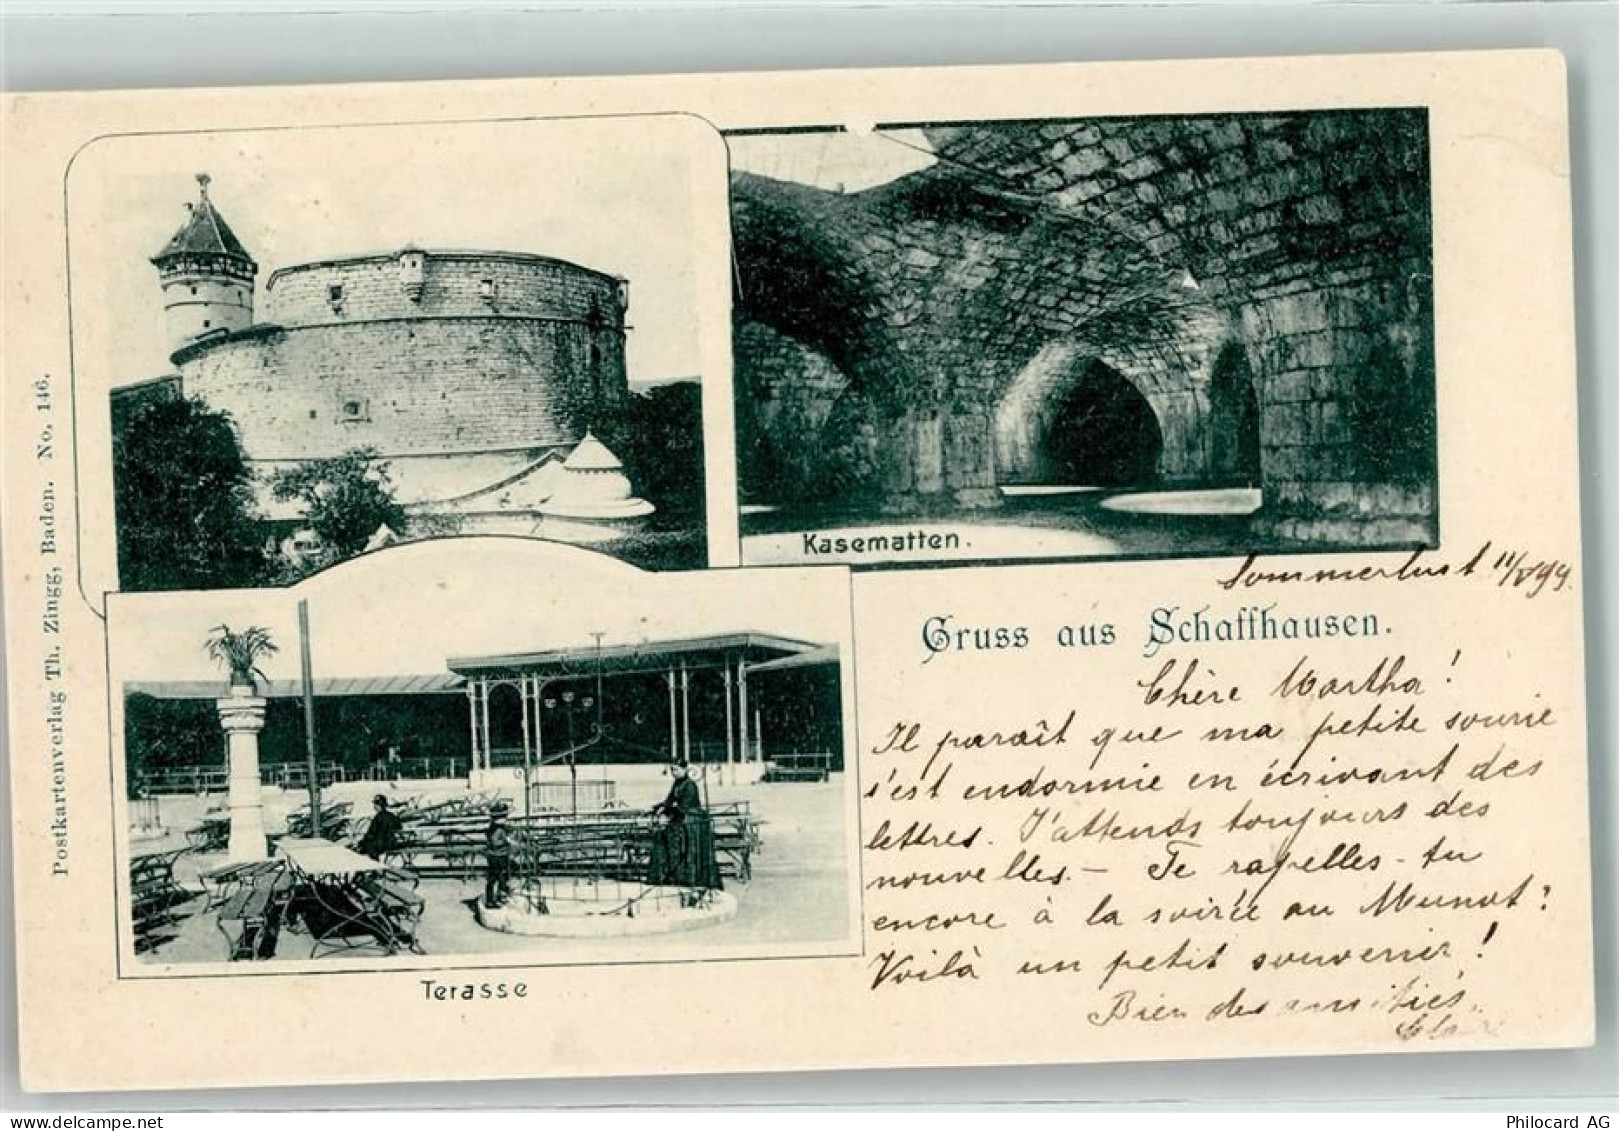 Postkartenverlag Th. Zingg, Baden. No. 146.
Kasematten.
Terasse
Gruss aus Schaffhausen.
Sommerlust 11/V 99.
Chère Martha!
Il paraît que ma petite sourie
s'est endormie en écrivant des
lettres. J'attends toujours des
nouvelles. — Te rapelles-tu
encore à la soirée au Munot?
Voilà un petit souvenir!
Bien des amitiés.
Philocard AG